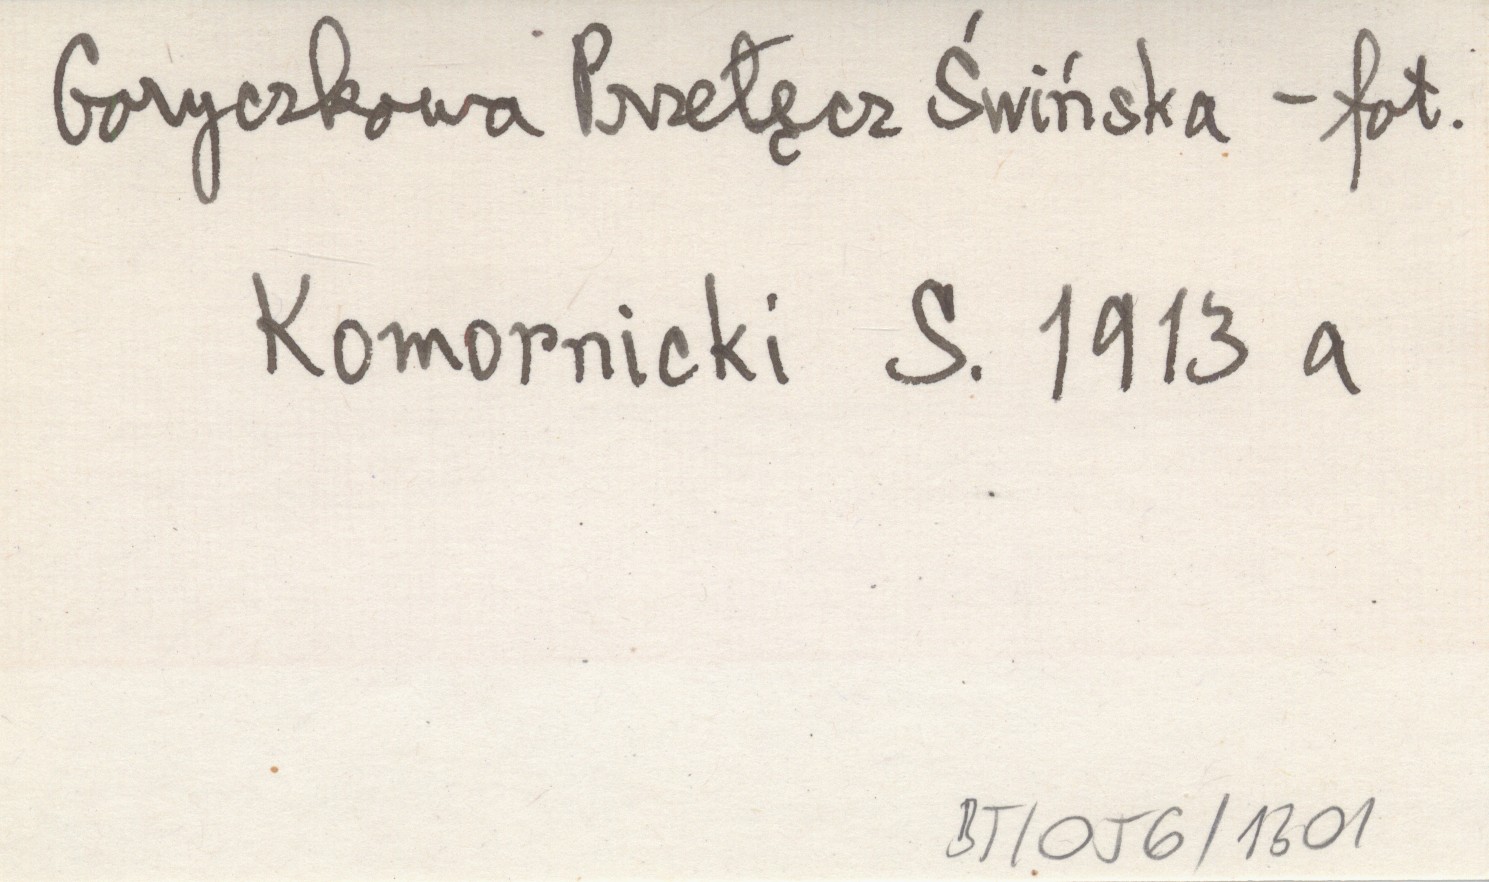 Goryczkowa Przełęcz Świńska - fot.
Komornicki S. 1913 a
BT/OJG/1301